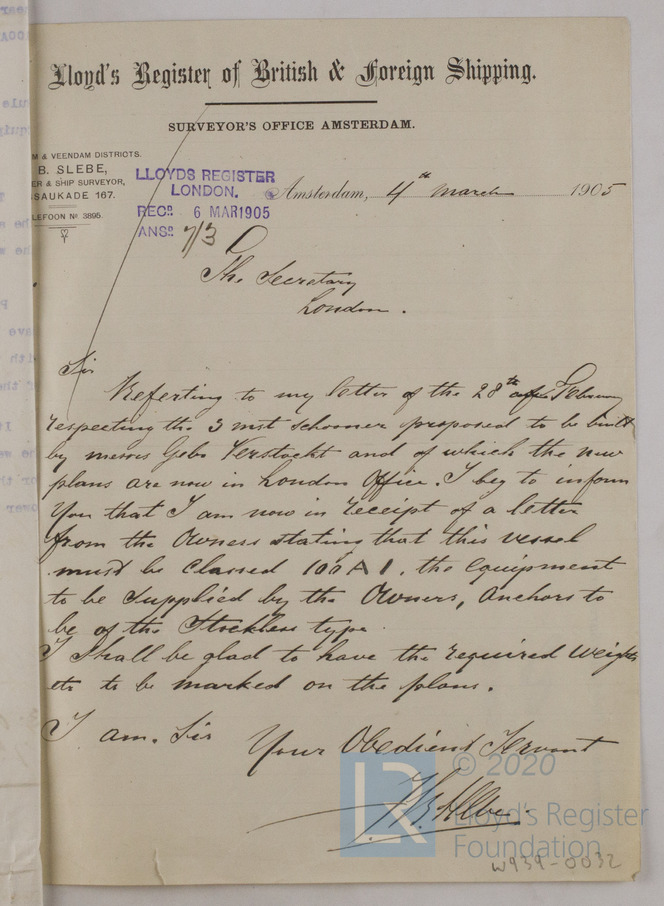 Lloyd's Register of British & Foreign Shipping.
SURVEYOR'S OFFICE AMSTERDAM.
M & VEENDAM DISTRICTS.
B. SLEBE,
ER & SHIP SURVEYOR,
SAUKADE 167.
LEFOON No 3895.
LLOYDS REGISTER
LONDON.
RECD. 6 MAR 1905
ANSD. 7/3
Amsterdam, 4th March 1905
The Secretary
London.
Sir
Referring to my letter of the 28th of February
respecting the 3 mst schooner proposed to be built
by messrs Gebr Verstockt and of which the new
plans are now in London Office. I beg to inform
You that I am now in receipt of a letter
from the Owners stating that this vessel
must be Classed 100A1. the Equipment
to be supplied by the Owners, Anchors to
be of the Stockless type.
I Shall be glad to have the required weights
etc to be marked on the plans.
I am. Sir Your Obedient Servant
© 2020
Lloyd's Register
Foundation
W939-0032